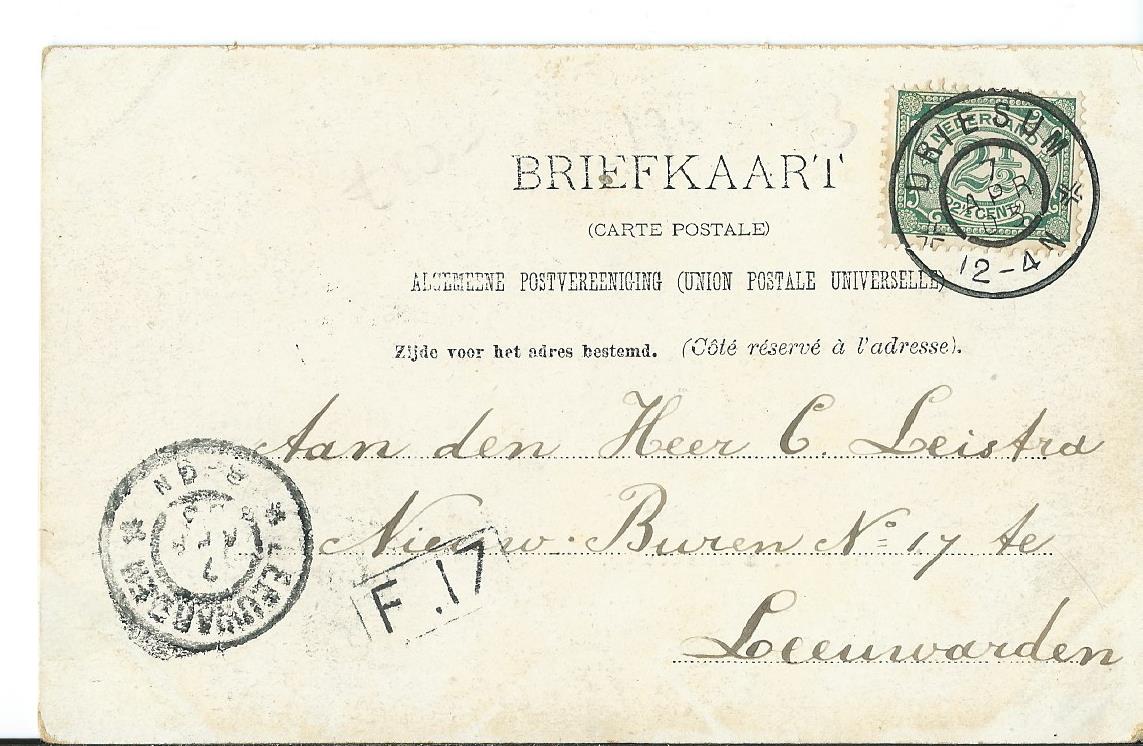 BRIEFKAART
(CARTE POSTALE)
ALGEMEENE POSTVEREENIGING (UNION POSTALE UNIVERSELLE)
Zijde voor het adres bestemd. (Côté réservé à l'adresse).
NEDERLAND
2½
2½ CENT
DRIESUM
7
APR
12-4N
Aan den Heer C. Leistra
Nieuw. Buren No= 17 te
Leeuwarden
LEEUWARDEN
7
F. 17